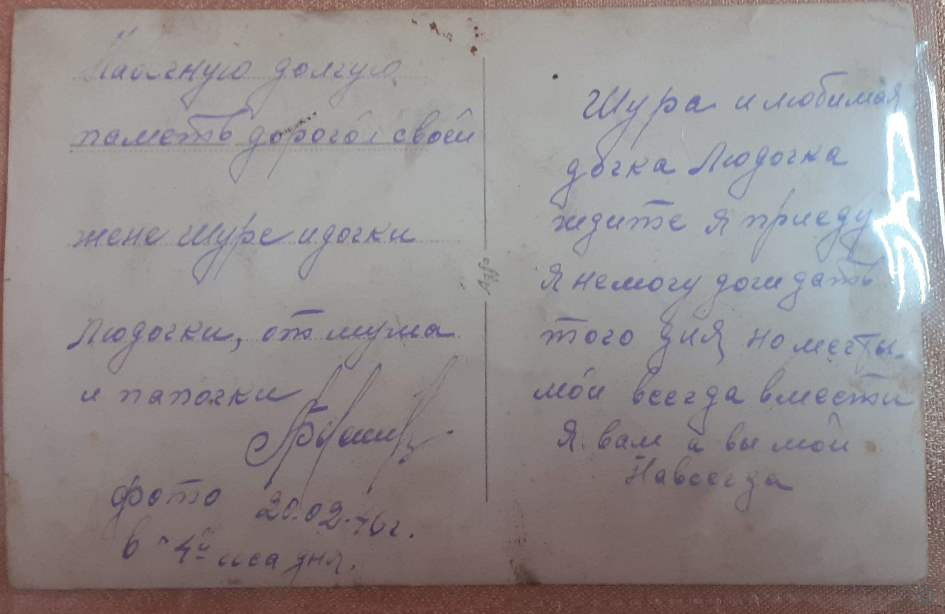 долгую
паметь дорогой своей
жене Шуре и дочки
Людочки, от мужа
и папочки
фото 20.02.46 г.
в 4 ча дня.
Шура и любимая
дочка Людочка
ждите я приеду
я немогу дождать
того дня, но мечты
мои всегда вмести
Я вам а вы мои
Навсегда